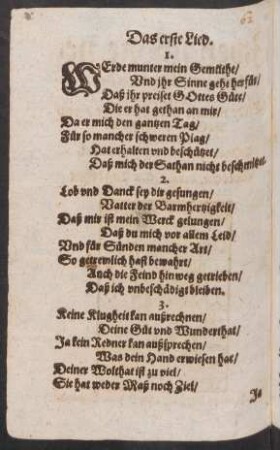 62
Das erste Lied.
1.
WErde munter mein Gemüthe/
Vnd jhr Sinne geht herfür/
Daß ihr preiset GOttes Güte/
Die er hat gethan an mir/
Da er mich den gantzen Tag/
Für so mancher schweren Plag/
Hat erhalten vnd beschützet/
Daß mich der Sathan nicht beschmitzet.
2.
Lob vnd Danck sey dir gesungen/
Vatter der Barmhertzigkeit/
Daß mir ist mein Werck gelungen/
Daß du mich vor allem Leid/
Vnd für Sünden mancher Art/
So getrewlich hast bewahrt/
Auch die Feind hinweg getrieben/
Daß ich vnbeschädigt bleiben.
3.
Keine Klugheit kan außrechnen/
Deine Güt vnd Wunderthat/
Ja kein Redner kan außsprechen/
Was dein Hand erwiesen hat/
Deiner Wolthat ist zu viel/
Sie hat weder Maß noch Ziel/
Ja